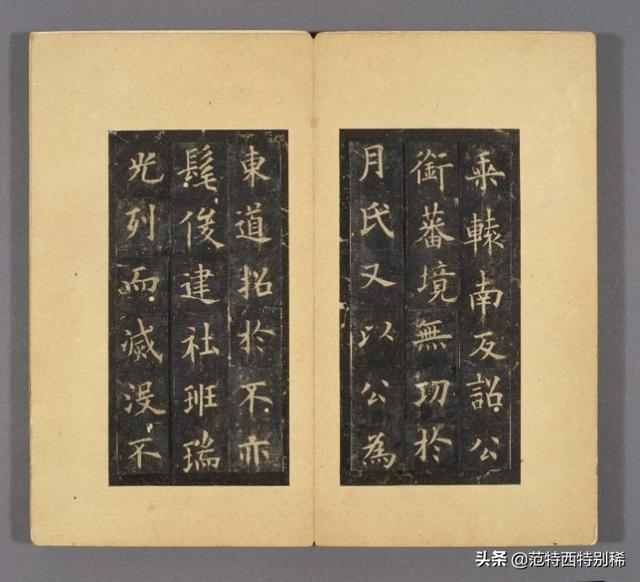 乗轅南反詔公
銜蕃境無功於
月氏又以公為
東道招於不亦
髦俊建社班瑞
光列而滅没不
头条 @范特西特别稀